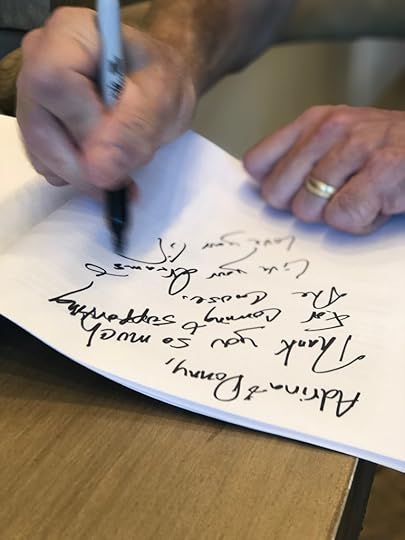 Adrina & Donny,
Thank you so much
for coming & supporting
the cause.
Live your dreams &
Love your li